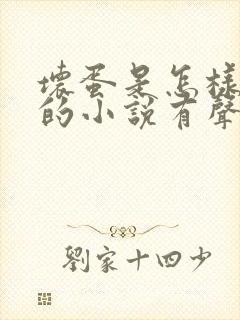 壞蛋是怎樣
的小說有聲
劉家十四少